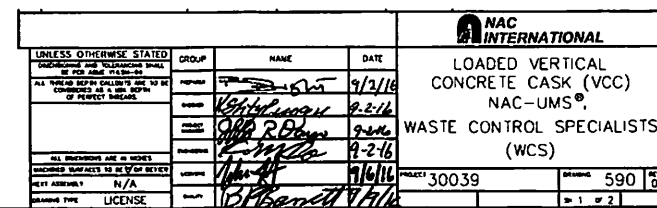 NAC
INTERNATIONAL
UNLESS OTHERWISE STATED
DIMENSIONING AND TOLERANCING SHALL
BE PER ASME Y14.5M-94
ALL THREAD DEPTH CALLOUTS ARE TO BE
CONSIDERED AS A MIN. DEPTH
OF PERFECT THREADS.
ALL DIMENSIONS ARE IN INCHES
MACHINED SURFACES TO BE OR BETTER
NEXT ASSEMBLY N/A
DRAWING TYPE LICENSE
GROUP NAME DATE
PREPARER 9/2/16
CHECKER 9-2-16
PROJECT MANAGER 9-2-16
ENGINEERING 9-2-16
LICENSING 9/6/16
QUALITY 9/9/16
LOADED VERTICAL
CONCRETE CASK (VCC)
NAC-UMS®,
WASTE CONTROL SPECIALISTS
(WCS)
PROJECT 30039 DRAWING 590
1 OF 2